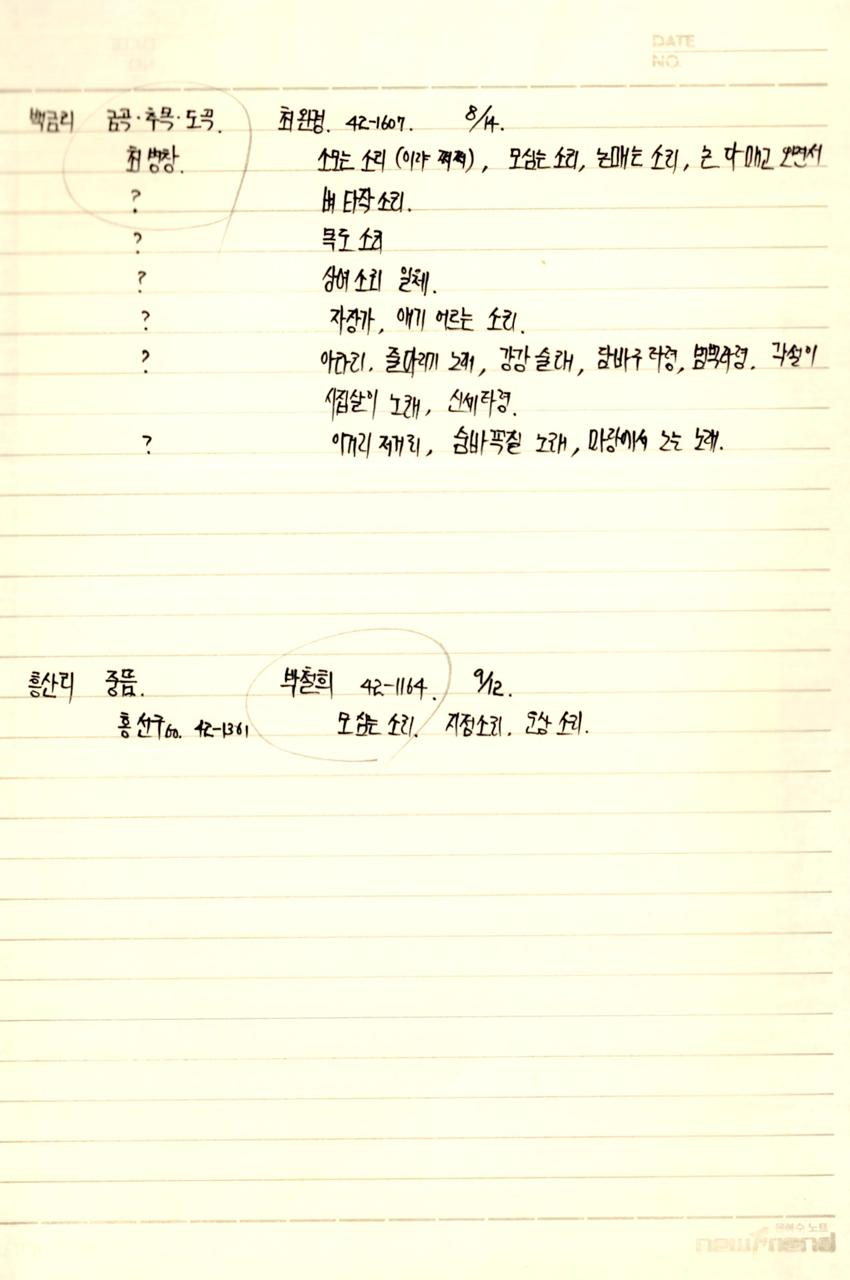 DATE
NO.
백금리 금곡·추목·도곡. 최원명. 42-1607. 8/14.
최병창. 소모는 소리 (이랴 쩌쩌), 모심는 소리, 논매는 소리, 논 다 매고 오면서
? 벼 타작 소리.
? 목도 소리
? 상여 소리 일체.
? 자장가, 애기 어르는 소리.
? 아라리. 줄다리기 노래, 강강술래, 담바구 타령, 범벅타령. 각설이
시집살이 노래, 신세타령.
? 이거리 저거리, 숨바꼭질 노래, 마당에서 노는 노래.
흥산리 중뜸. 박철희 42-1164. 9/12.
홍선구60. 42-1361 모심는 소리. 지점소리. 소리.